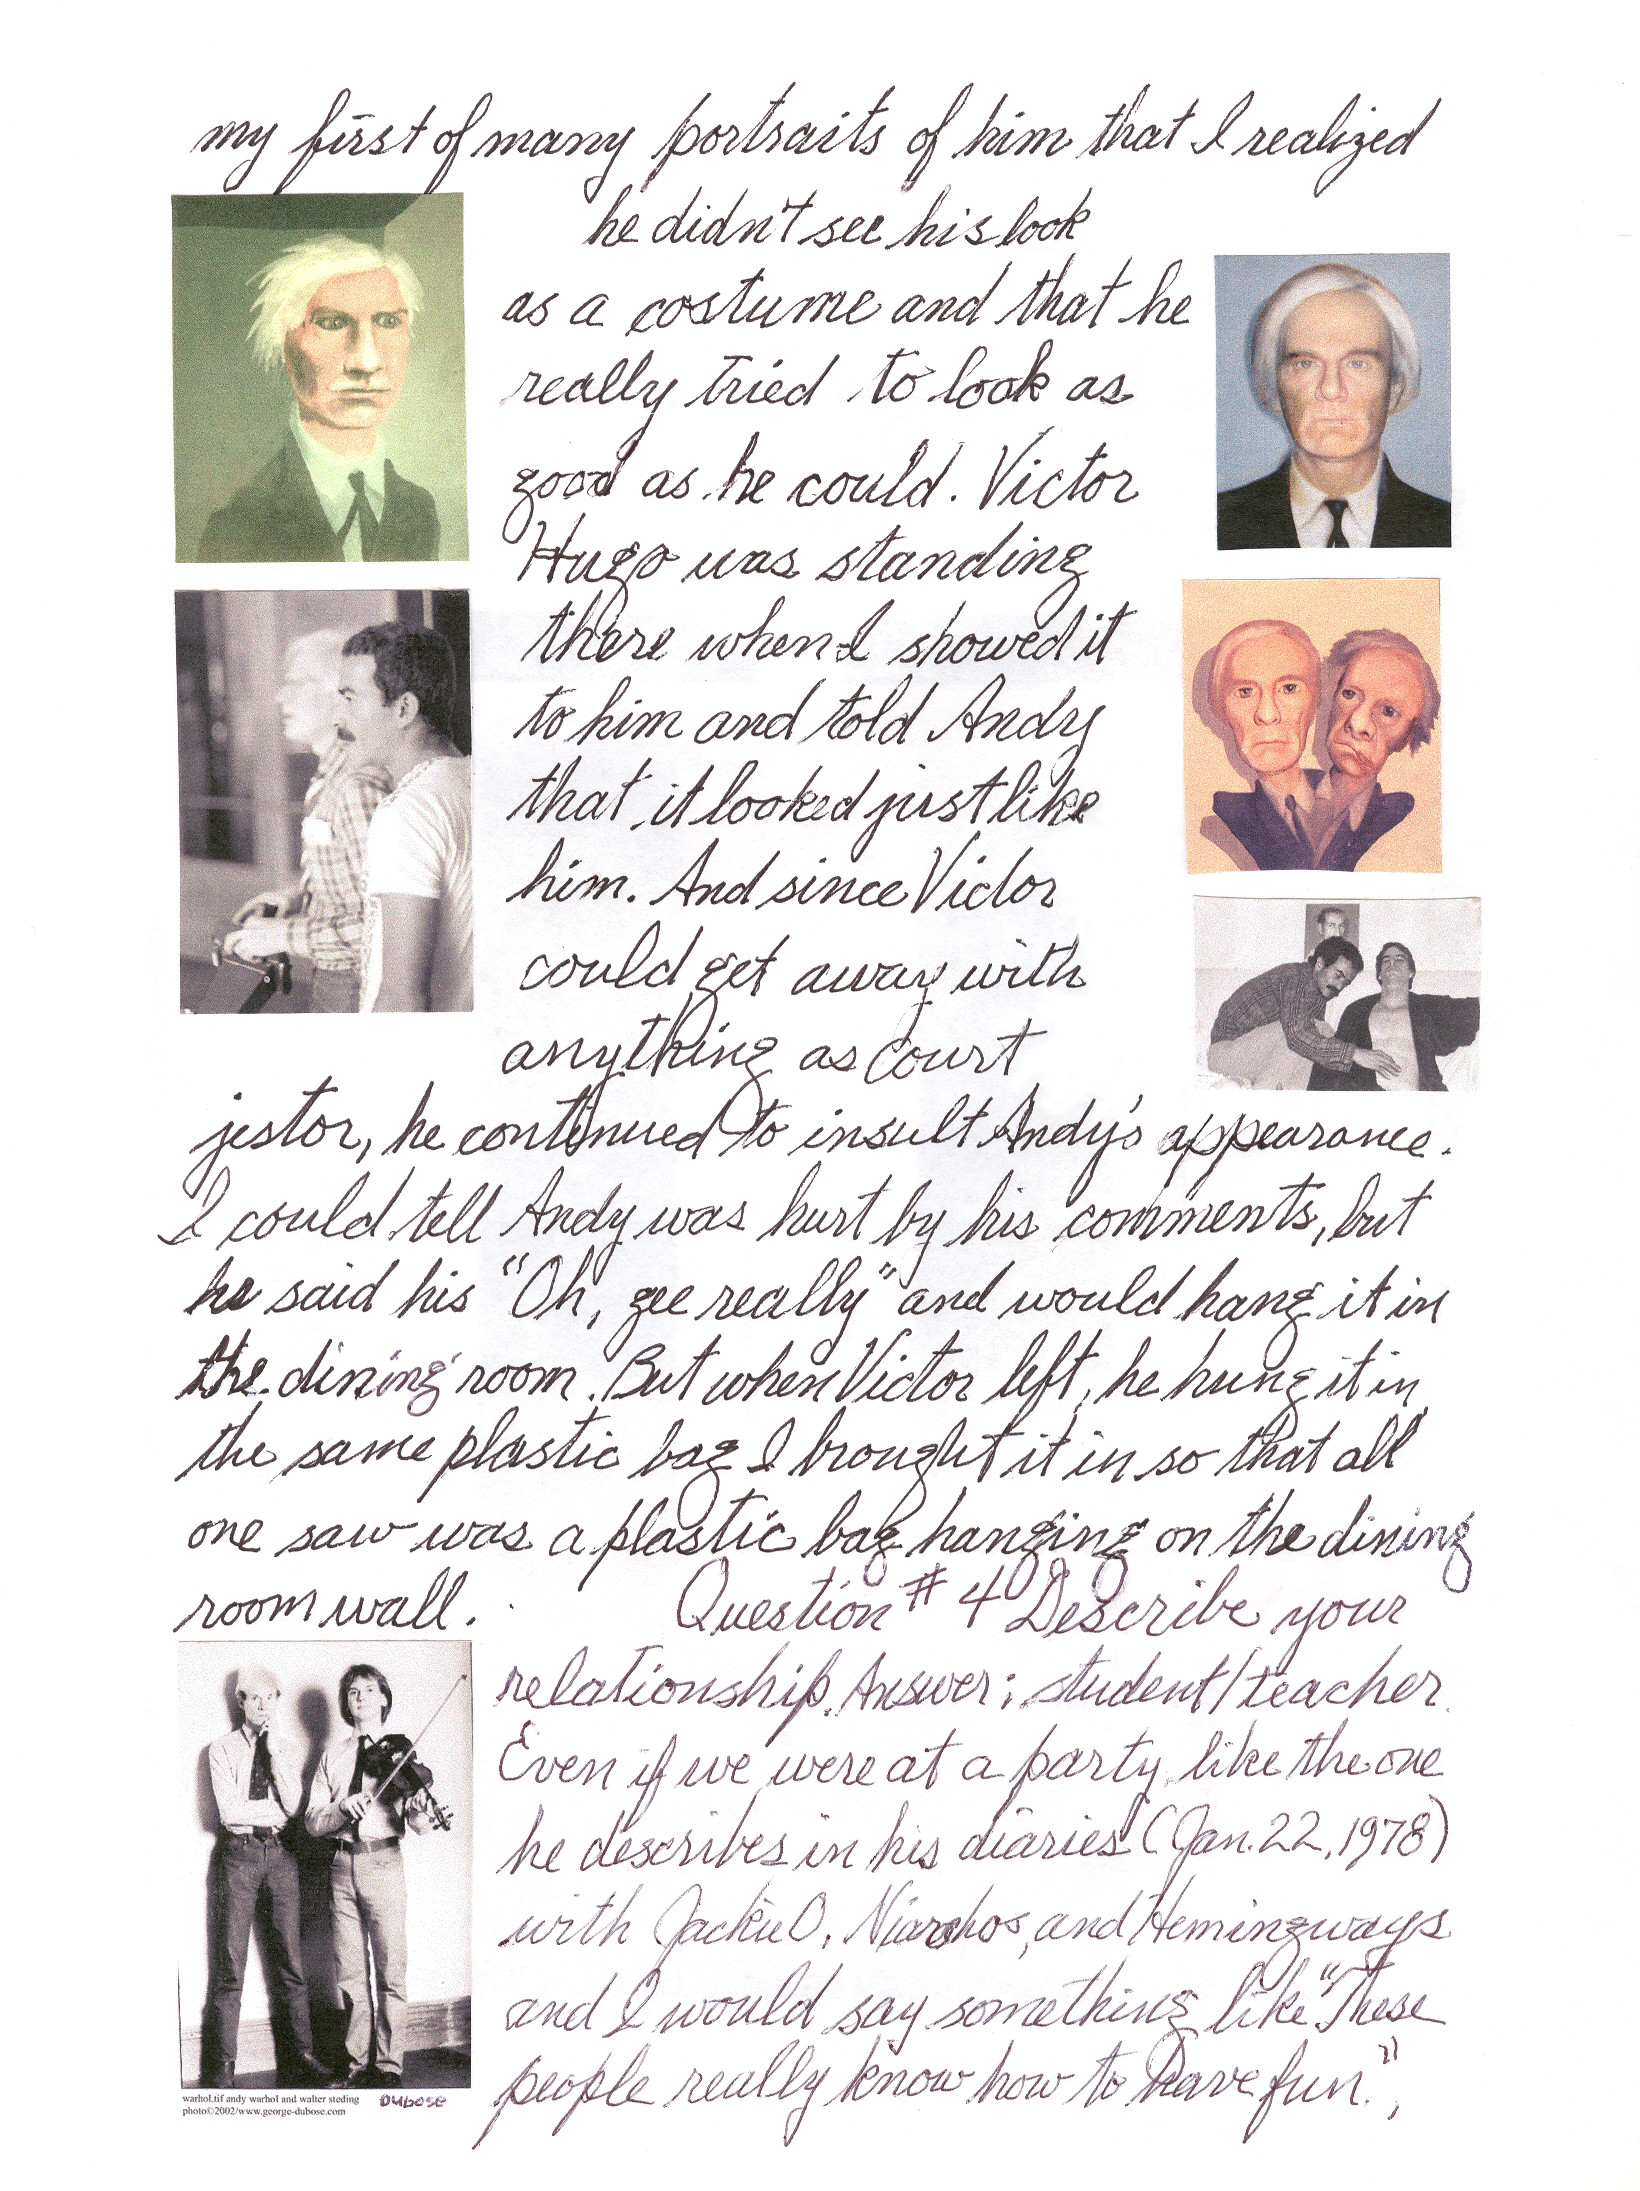 my first of many portraits of him that I realized
he didn't see his look
as a costume and that he
really tried to look as
good as he could. Victor
Hugo was standing
there when I showed it
to him and told Andy
that it looked just like
him. And since Victor
could get away with
anything as court
jestor, he continued to insult Andy's appearance.
I could tell Andy was hurt by his comments, but
he said his "Oh, gee really" and would hang it in
the dining room. But when Victor left, he hung it in
the same plastic bag I brought it in so that all
one saw was a plastic bag hanging on the dining
room wall. Question #4 Describe your
relationship. Answer: student/teacher.
Even if we were at a party like the one
he describes in his diaries (Jan. 22, 1978)
with Jackie O, Niarchos, and Hemingways
and I would say something like "These
people really know how to have fun.",
warhol.tif andy warhol and walter steding
photo©2002/www.george-dubose.com
Dubose